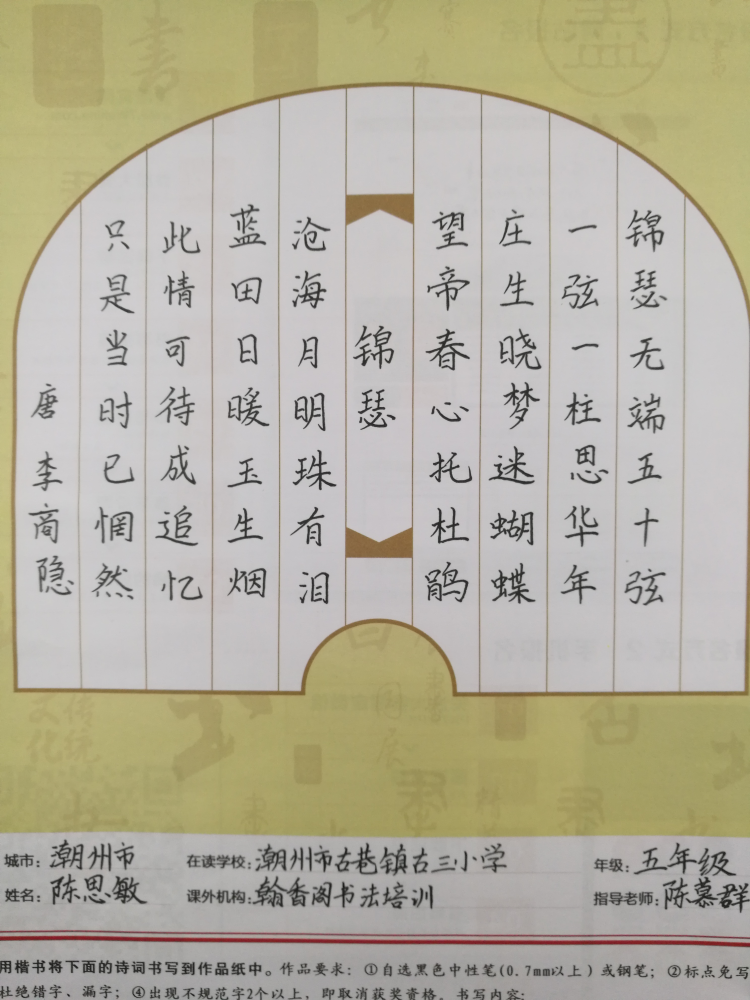 锦瑟无端五十弦
一弦一柱思华年
庄生晓梦迷蝴蝶
望帝春心托杜鹃
锦瑟
沧海月明珠有泪
蓝田日暖玉生烟
此情可待成追忆
只是当时已惘然
唐 李商隐
城市: 潮州市 在读学校: 潮州市古巷镇古三小学 年级: 五年级
姓名: 陈思敏 课外机构: 翰香阁书法培训 指导老师: 陈慕群
用楷书将下面的诗词书写到作品纸中。作品要求: ①自选黑色中性笔(0.7mm以上) 或钢笔; ②标点免写
杜绝错字、漏字; ④出现不规范字2个以上, 即取消获奖资格。书写内容: